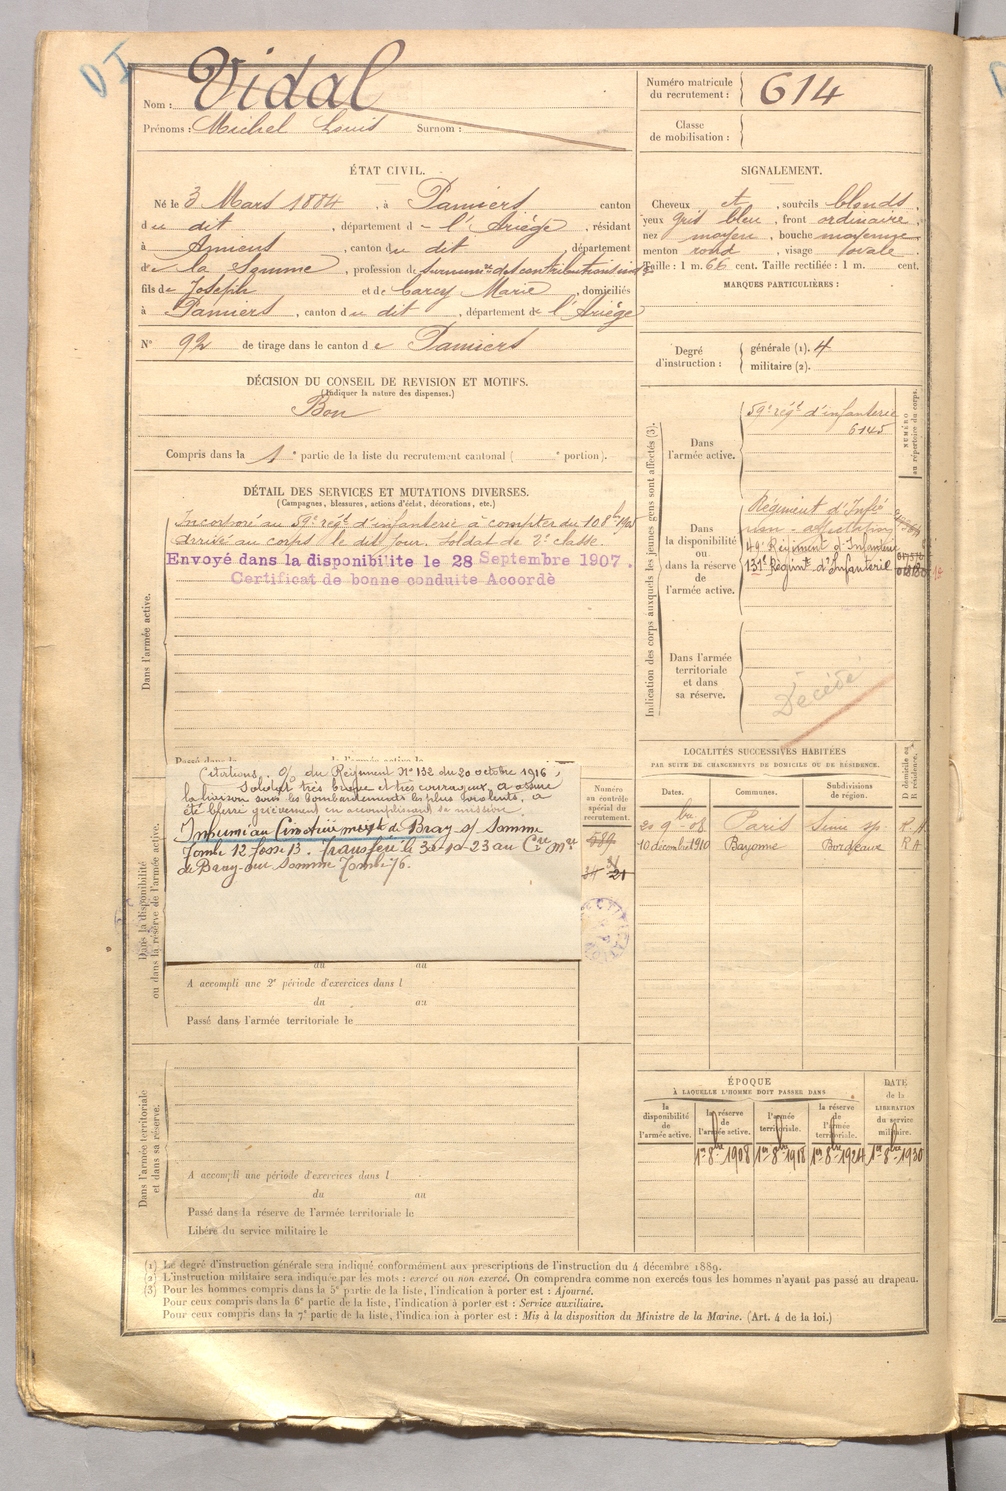 Nom : Vidal
Prénoms : Michel Louis Surnom :
Numéro matricule du recrutement : 614
Classe de mobilisation :
ÉTAT CIVIL.
Né le 3 Mars 1884, à Pamiers canton
du dit, département d- l'Ariège, résidant
à Amiens, canton du dit, département
de la Somme, profession de surnumre des contributions indes
fils de Joseph et de Carcy Marie, domiciliés
à Pamiers, canton du dit, département de l'Ariège
N° 92 de tirage dans le canton de Pamiers
SIGNALEMENT.
Cheveux et, sourcils blonds,
yeux gris bleu, front ordinaire,
nez moyen, bouche moyenne,
menton rond, visage ovale.
Taille : 1 m. 66 cent. Taille rectifiée : 1 m. cent.
MARQUES PARTICULIÈRES :
Degré d'instruction : générale (1). 4
militaire (2).
DÉCISION DU CONSEIL DE REVISION ET MOTIFS.
(Indiquer la nature des dispenses.)
Bon
Compris dans la 1e partie de la liste du recrutement cantonal ( e portion).
DÉTAIL DES SERVICES ET MUTATIONS DIVERSES.
(Campagnes, blessures, actions d'éclat, décorations, etc.)
Dans l'armée active.
Incorporé au 59e régt d'infanterie à compter du 10 8bre 1905
Arrivé au corps le dit jour. Soldat de 2e classe.
Envoyé dans la disponibilite le 28 Septembre 1907.
Certificat de bonne conduite Accordè
Passé dans l'armée active le
Indication des corps auxquels les jeunes gens sont affectés (3).
Dans l'armée active.
59e régt d'infanterie
6145
NUMÉRO au répertoire du corps.
Dans la disponibilité ou dans la réserve de l'armée active.
Régiment d'Infie
49e Régiment d'Infanterie
131e Régimt d'Infanterie
Dans l'armée territoriale et dans sa réserve.
Décédé
Dans la disponibilité ou dans la réserve de l'armée active.
Citations. O/ du Régiment N° 132 du 20 octobre 1916,
Soldat très brave et très courageux, a assuré
la liaison sous les bombardements les plus violents, a
été blessé grièvement en accomplissant sa mission.
Inhumé au Cimetière de Bray s/ Somme
Tombe 12 fosse 13. Transféré le 30-10-23 au Cre Mre
de Bray-sur Somme Tombe 76.
Numéro au contrôle spécial du recrutement.
au au
A accompli une 2e période d'exercices dans l
du au
Passé dans l'armée territoriale le
LOCALITÉS SUCCESSIVES HABITÉES
PAR SUITE DE CHANGEMENTS DE DOMICILE OU DE RÉSIDENCE.
Dates. Communes. Subdivisions de région. D domicile ou R résidence.
20 9bre 08 Paris Seine sp R A
10 décembre 1910 Bayonne Bordeaux R A
ÉPOQUE
À LAQUELLE L'HOMME DOIT PASSER DANS
la disponibilité de l'armée active.
la réserve de l'armée active. 1er 8bre 1908
l'armée territoriale. 1er 8bre 1918
la réserve de l'armée territoriale. 1er 8bre 1924
DATE de la LIBÉRATION du service militaire. 1er 8bre 1930
Dans l'armée territoriale et dans sa réserve.
A accompli une période d'exercices dans l
du au
Passé dans la réserve de l'armée territoriale le
Libéré du service militaire le
(1) Le degré d'instruction générale sera indiqué conformément aux prescriptions de l'instruction du 4 décembre 1889.
(2) L'instruction militaire sera indiquée par les mots : exercé ou non exercé. On comprendra comme non exercés tous les hommes n'ayant pas passé au drapeau.
(3) Pour les hommes compris dans la 5e partie de la liste, l'indication à porter est : Ajourné.
Pour ceux compris dans la 6e partie de la liste, l'indication à porter est : Service auxiliaire.
Pour ceux compris dans la 7e partie de la liste, l'indication à porter est : Mis à la disposition du Ministre de la Marine. (Art. 4 de la loi.)